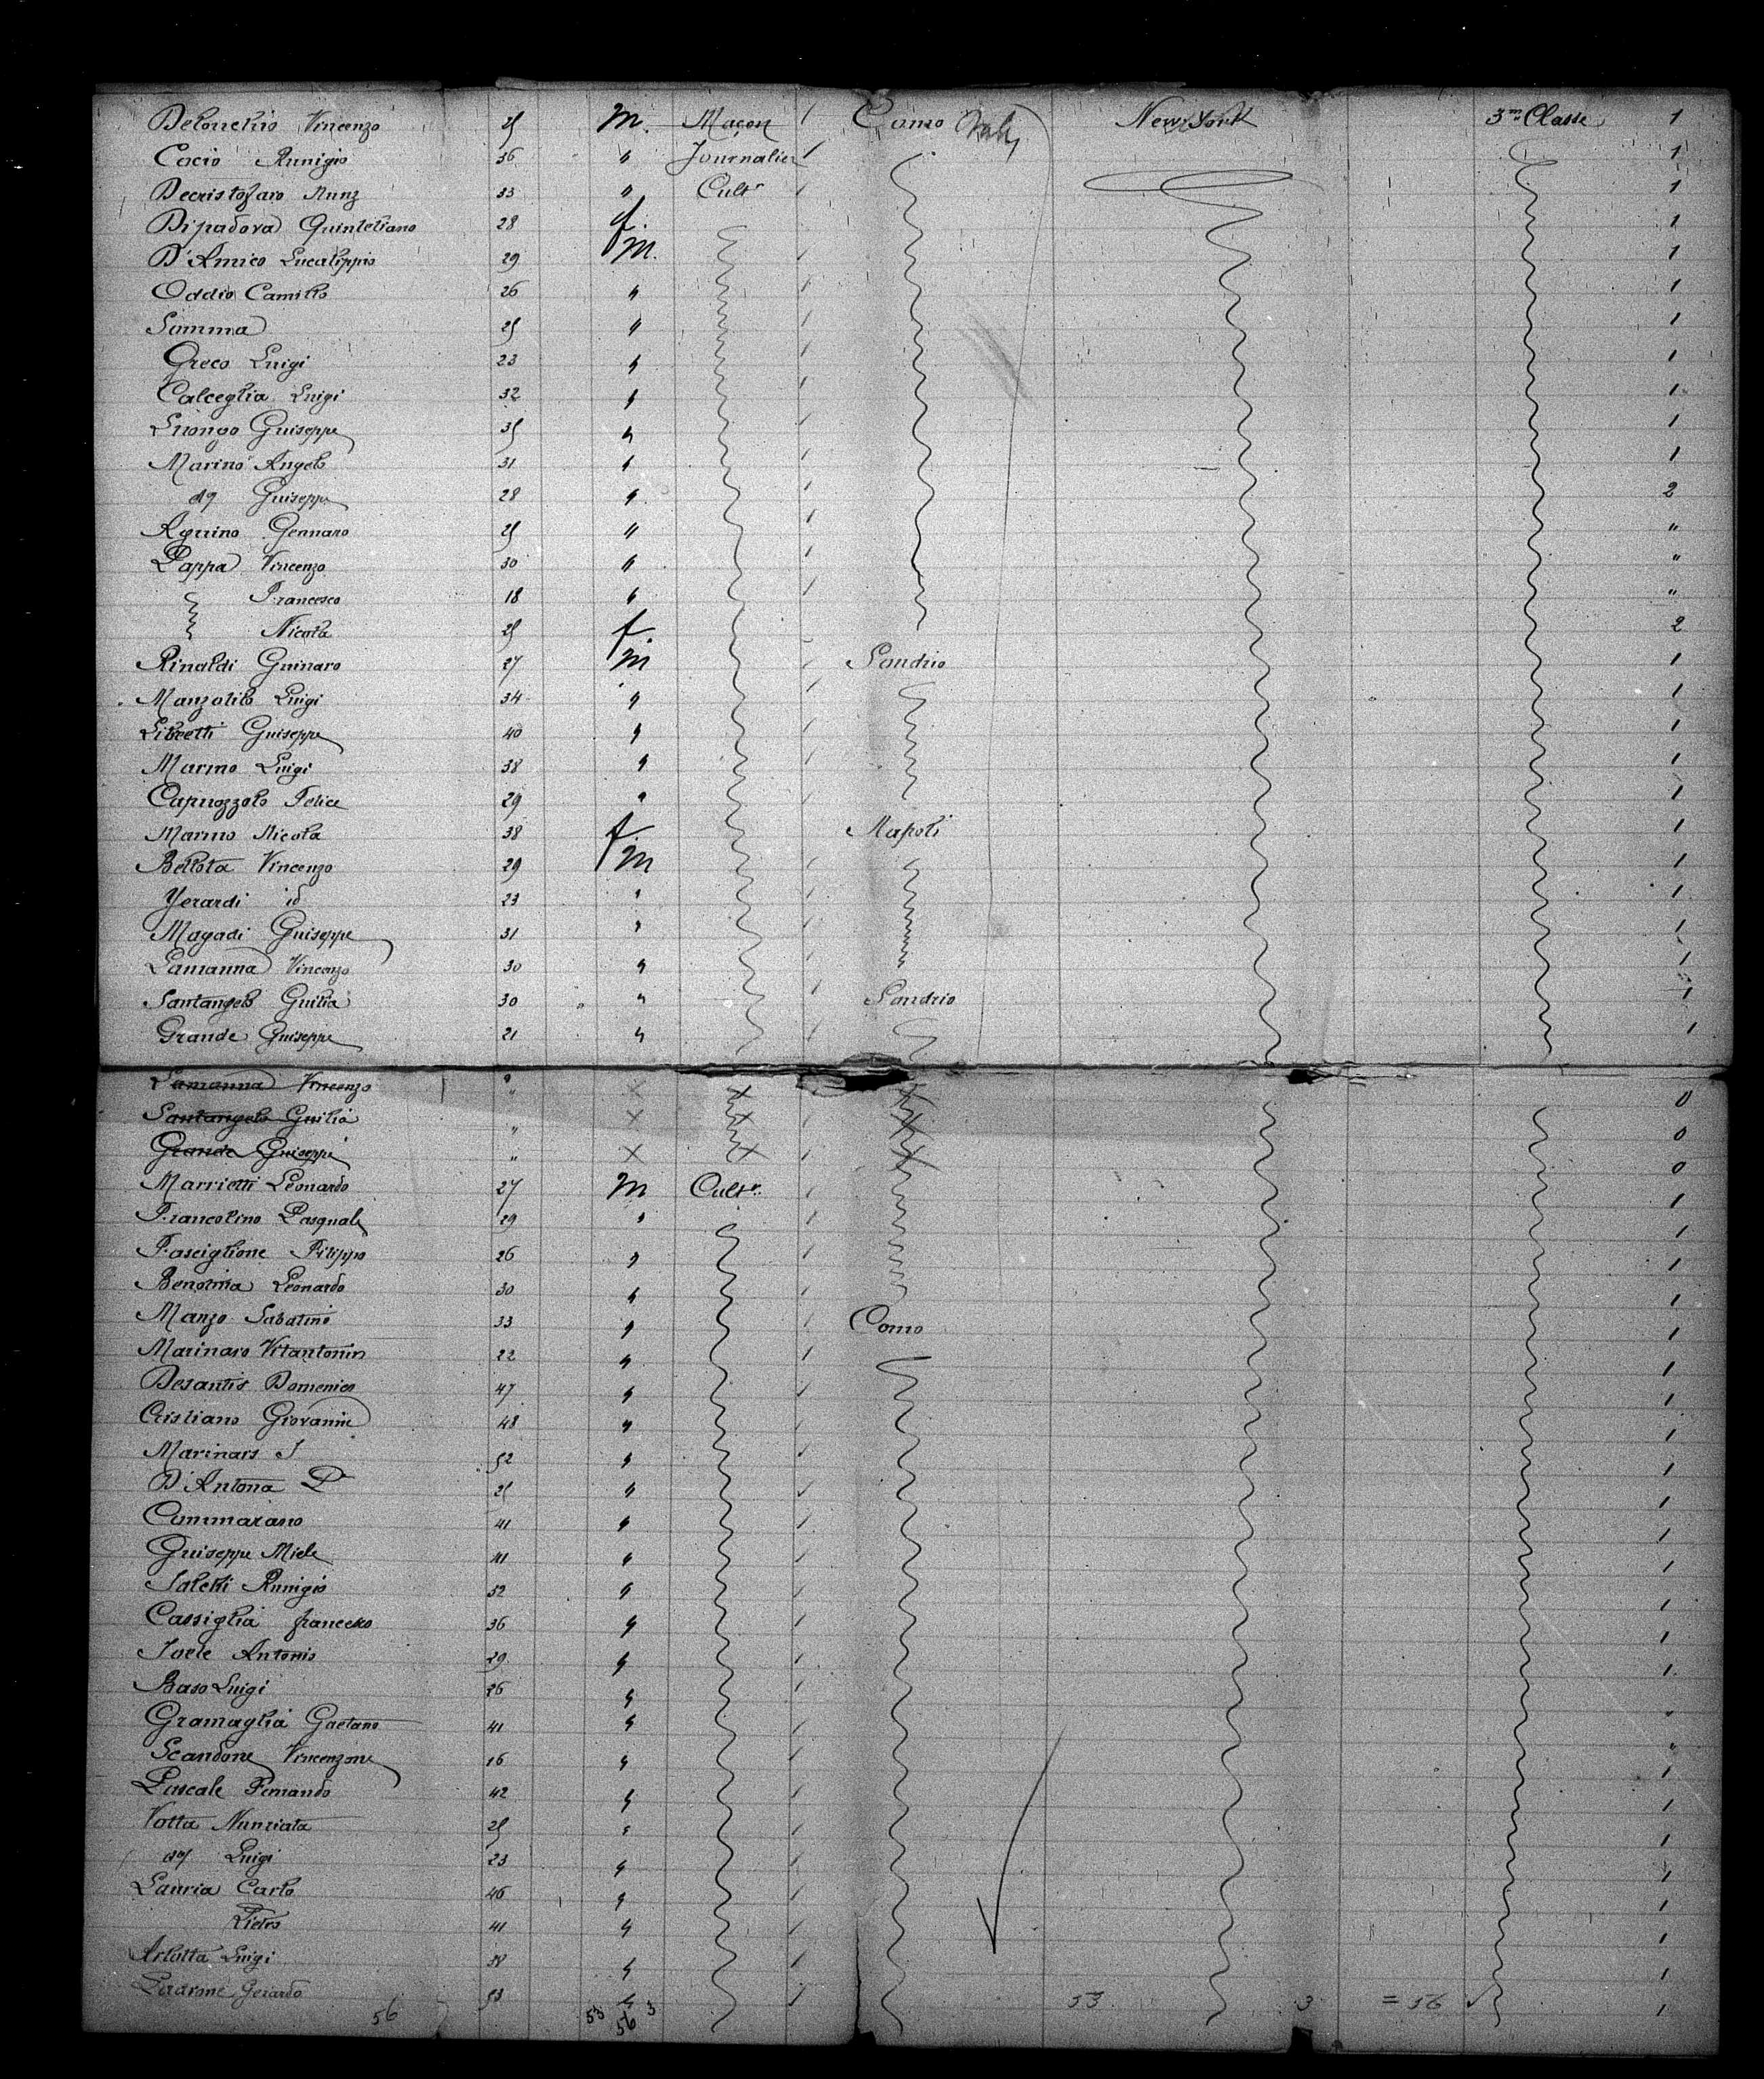 Delonchio Vincenzo 25 M. Maçon / Como Italy New York 3me Classe 1
Cocio Runigio 36 " Journalier / 1
Decristofaro Nunz 33 " Cultr / 1
Dipadova Quinteliano 28 f. 1
D'Amico Lucalippio 29 M. / 1
Oddio Camillo 26 " / 1
Somma 25 " / 1
Greco Luigi 23 " / 1
Calceglia Luigi 32 " / 1
Luongo Guiseppe 35 " / 1
Marino Angelo 31 " / 1
dº Guiseppe 28 " / 2
Aquino Gennaro 25 " / "
Pappa Vincenzo 30 " / "
Francesco 18 " / "
Nicola 25 f. 2
Rinaldi Guinaro 27 M / Sondrio 1
Manzolilo Luigi 34 " / 1
Libretti Guiseppe 40 " / 1
Marino Luigi 38 " / 1
Capuozzolo Felice 29 " 1
Marino Nicola 38 f. Napoli 1
Bellota Vincenzo 29 M / 1
Yerardi id 23 " / 1
Magadi Guiseppe 31 " / 1
Lamanna Vincenzo 30 " / 1
Santangelo Guilia 30 " / Sondrio 1
Grande Guiseppe 21 " / 1
Lamanna Vincenzo " X X X 0
Santangelo Guilia " X X X 0
Grande Guiseppe " X X X 0
Marrietti Leonardo 27 M Cultr / 1
Francolino Pasquale 29 " / 1
Fasciglione Filippo 26 " / 1
Benomia Leonardo 30 " / 1
Manzo Sabatino 33 " / Como 1
Marinaro Vitantonin 22 " / 1
Desantis Domenico 47 " / 1
Cristiano Giovanni 48 " / 1
Marinars J 52 " / 1
D'Antona P 25 " / 1
Cammarano 41 " / 1
Guiseppe Miele 41 " / 1
Salchi Runigio 32 " / 1
Cassiglia francesco 36 " / 1
Joele Antonio 29 " / 1
Baso Luigi 26 " / 1
Gramaglia Gaetano 41 " / "
Scandone Vincenzone 16 " / "
Pascale Fernando 42 " / 1
Votta Nunziata 25 " / 1
dº Luigi 23 " / 1
Lauria Carlo 46 " / 1
Pietro 41 " / 1
Arlotta Luigi 38 " / 1
Ladrone Gerardo 53 " / 1
56 53 3 53 3 = 56
56